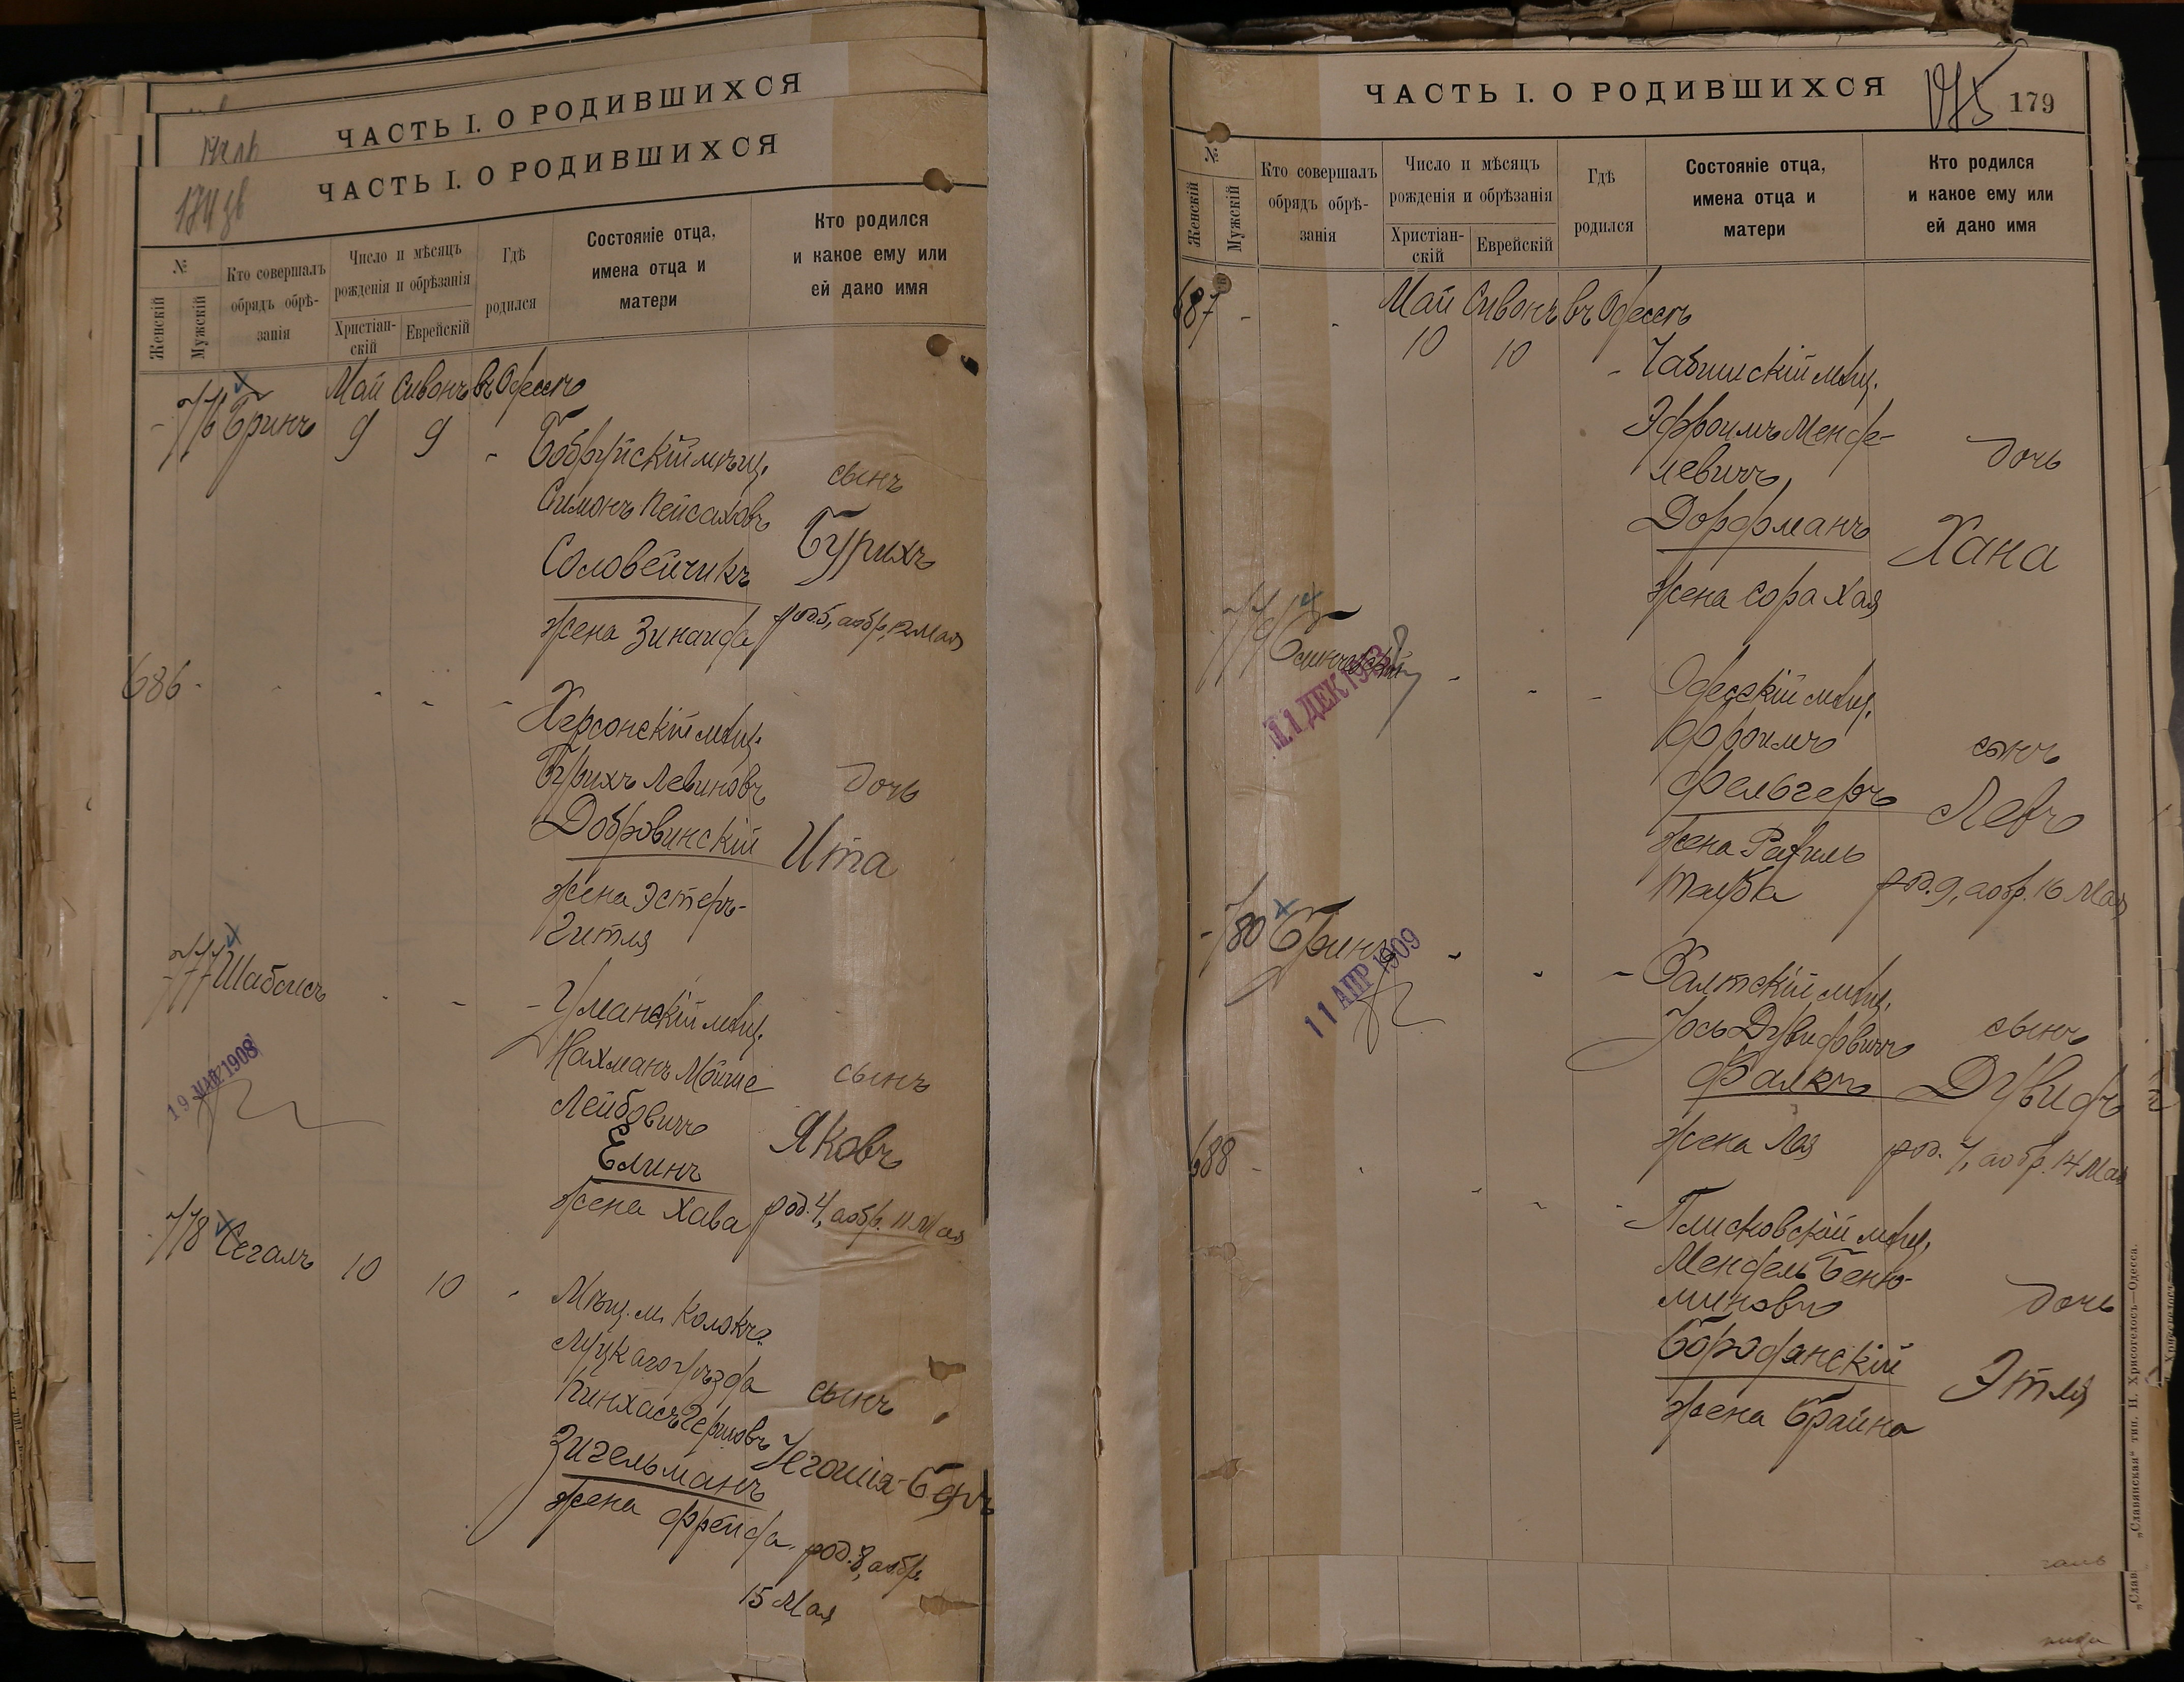 ЧАСТЬ I. О РОДИВШИХСЯ
ЧАСТЬ I. О РОДИВШИХСЯ
№
Женскій
Мужскій
Кто совершалъ
обрядъ обрѣ-
занія
Число и мѣсяцъ
рожденія и обрѣзанія
Христіан-
скій
Еврейскій
Гдѣ
родился
Состояніе отца,
имена отца и
матери
Кто родился
и какое ему или
ей дано имя
Май Сивонъ въ Одессѣ
- 776 Бринъ 9 9 -
Бобруйскій мѣщ.
Симонъ Пейсаховъ
Соловейчикъ
жена Зинаида
сынъ
Бурихъ
род. 5, а обр. 12 Мая
686 - - - - -
Херсонскій мѣщ.
Бурихъ Левиновъ
Добровинскій
жена Эстеръ-
Гитля
дочь
Ита
- 777 Шабсисъ - - -
19 МАР 1908
Уманскій мѣщ.
Нахманъ Мойше
Лейбовичъ
Елинъ
жена Хава
сынъ
Яковъ
род. 4, а обр. 11 Мая
- 778 Сегалъ 10 10 -
Мѣщ. м. Колокъ
Луцкаго уѣзда
Пинхасъ Гершовъ
Зигельманъ
жена Фрейда
сынъ
Іегошія-Беръ
род. 8, а обр.
15 Мая
ЧАСТЬ I. О РОДИВШИХСЯ
175 179
№
Женскій
Мужскій
Кто совершалъ
обрядъ обрѣ-
занія
Число и мѣсяцъ
рожденія и обрѣзанія
Христіан-
скій
Еврейскій
Гдѣ
родился
Состояніе отца,
имена отца и
матери
Кто родился
и какое ему или
ей дано имя
Май Сивонъ въ Одессѣ
687 - - 10 10 -
Эфроимъ Менде-
левичъ
Дорфманъ
жена Сора Хая
дочь
Хана
779
11 ДЕК
Одесскій мѣщ.
Фроимъ
Фельгеръ
жена Рахиль
Тауба
сынъ
Левъ
род. 9, а обр. 16 Мая
- 780 Бринъ - - -
11 АПР 1909
Балтскій мѣщ.
Іось Дувидовичъ
Фалкъ
жена Лея
сынъ
Дувидъ
род. 7, а обр. 14 Мая
688 - - - - -
Плисковскій мѣщ.
Мендель Беню-
миновъ
Бородянскій
жена Брайна
дочь
Этля
„Славянская“ тип. Н. Хрисогелосъ—Одесса.